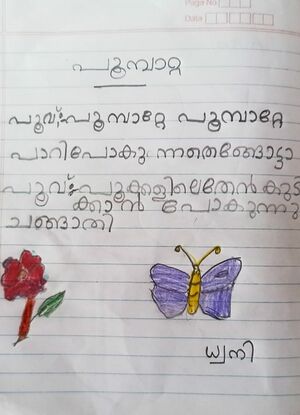 Page No
Date
പൂമ്പാറ്റ
പൂവ്:-പൂമ്പാറ്റേ പൂമ്പാറ്റേ
പാറിപോകു ന്നതെങ്ങോട്ടാ
പൂവ്:-പൂക്കളിലെതേൻ കുടി
ക്കാൻ പോകുന്നു
ചങ്ങാതി
ധ്വനി